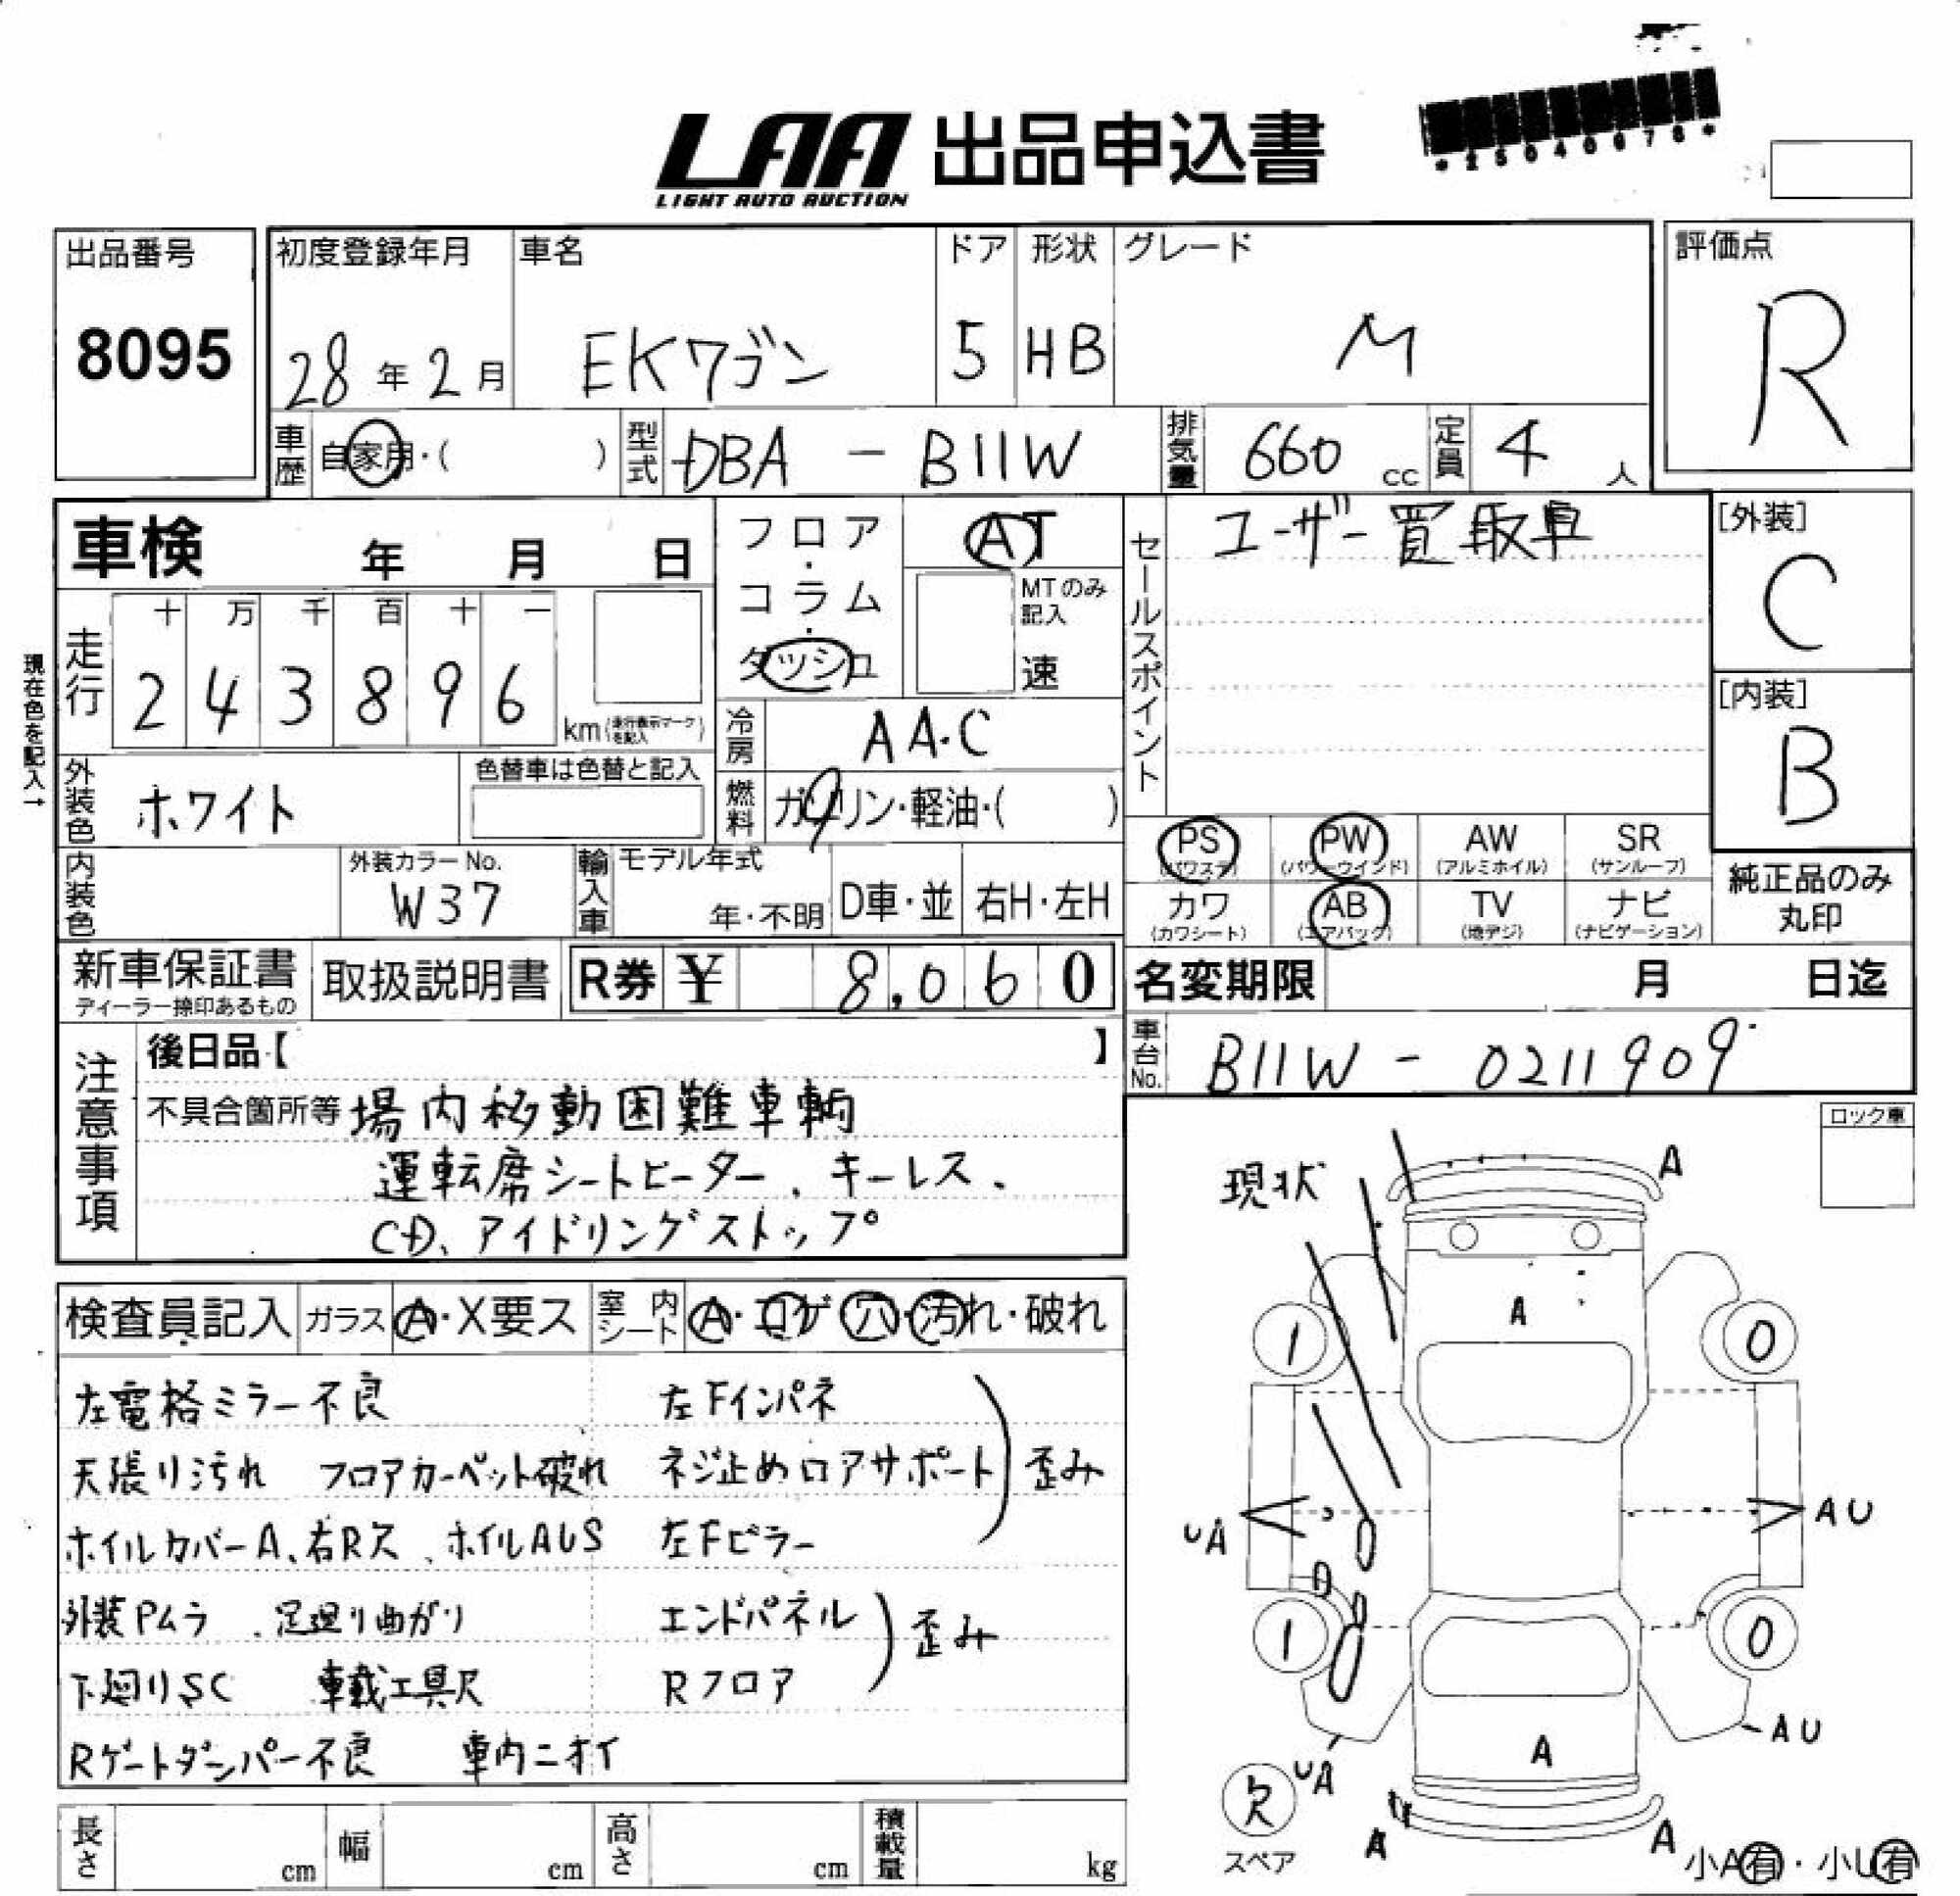 LAA 出品申込書
LIGHT AUTO AUCTION
出品番号
8095
初度登録年月
28年2月
車名
EKワゴン
ドア
5
形状
HB
グレード
M
評価点
R
車歴 自家用・( )
型式 DBA - B11W
排気量 660 cc
定員 4 人
車検 年 月 日
フロア・コラム・ダッシュ
AT
MTのみ記入
速
セールスポイント
ユーザー買取車
[外装]
C
[内装]
B
現在色を記入→
走行
十 万 千 百 十 一
2 4 3 8 9 6
km(走行表示マークを記入)
冷房 AA・C
燃料 ガソリン・軽油・( )
外装色 ホワイト
色替車は色替と記入
内装色
外装カラーNo.
W37
輸入車
モデル年式
年・不明
D車・並
右H・左H
PS (パワステ)
PW (パワーウインド)
AW (アルミホイル)
SR (サンルーフ)
カワ (カワシート)
AB (エアバック)
TV (地デジ)
ナビ (ナビゲーション)
純正品のみ
丸印
新車保証書
ディーラー捺印あるもの
取扱説明書
R券 ¥ 8,060
名変期限 月 日迄
車台No. B11W - 0211909
注意事項
後日品【 】
不具合箇所等 場内移動困難車輌
運転席シートヒーター、キーレス、
CD、アイドリングストップ
ロック車
現状
検査員記入
ガラス A・X要ス
室内シート A・コゲ・穴・汚れ・破れ
左電格ミラー不良 左Fインパネ
天張り汚れ フロアカーペット破れ ネジ止めロアサポート 歪み
ホイルカバーA、右R欠、ホイルAUS 左Fピラー
外装Pムラ、足廻り曲がり エンドパネル 歪み
下廻りSC 車載工具欠 Rフロア
Rゲートダンパー不良 車内ニオイ
A
A
1
0
UA
AU
1
0
AU
A
UA
欠
スペア
A
A
小A有・小U有
長さ cm
幅 cm
高さ cm
積載量 kg